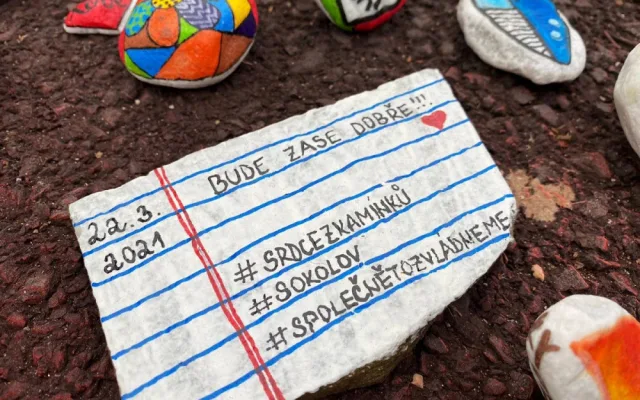 BUDE ZASE DOBŘE!!!
22.3.
2021
#SRDCEZKAMÍNKŮ
#SOKOLOV
#SPOLEČNĚTOZVLÁDNEME